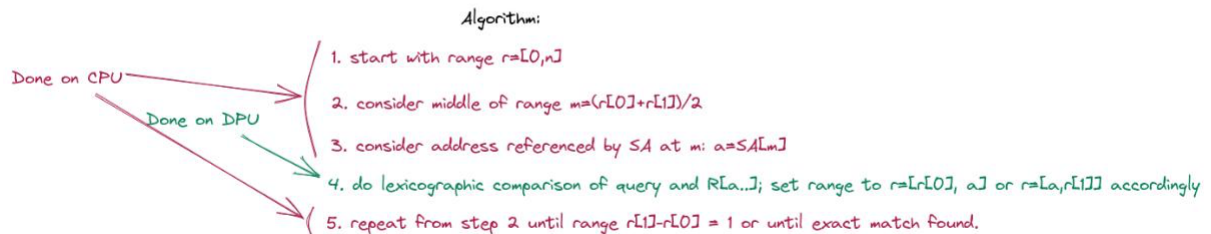 Algorithm:
1. start with range r=[0,n]
Done on CPU
2. consider middle of range m=(r[0]+r[1])/2
Done on DPU
3. consider address referenced by SA at m: a=SA[m]
4. do lexicographic comparison of query and R[a..]; set range to r=[r[0], a] or r=[a,r[1]] accordingly
5. repeat from step 2 until range r[1]-r[0] = 1 or until exact match found.